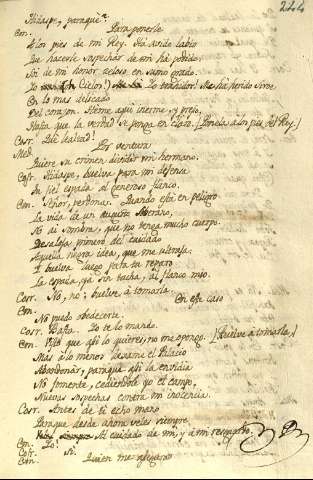 244
Hidaspe, paraque?
Con. Para ponerle
A los pies de mi Rey. Ha avido labio
Que hacerle sospechar de mi ha podido.
Soi de mi honor zeloso en sumo grado.
Yo (Cielos!) Yo traidor! Me ha herido Sire
En lo mas delicado
Del corazon. Heme aqui inerme, y preso,
Hasta que la verdad se ponga en claro. [Ponela a los pies del Rey.]
Cosr. Que lealtad!
Med. Por ventura
Quiere su crimen dividir mi hermano.
Cosr. Hidaspe, buelva para mi defensa
Tu fiel espada al generoso flanco.
Con. Señor, perdona. Quando está en peligro
La vida de un augusto Soverano,
No ai sombra, que no tenga mucho cuerpo.
Desaloja primero del cuidado
Aquella negra idea, que me ultraja.
Y buelve luego para tu reparo
La espada, ya sin tacha, al flanco mio.
Cosr. No, no: buelve à tomarla.
Con. En este caso
No puedo obedecerte.
Cosr. Basta. Yo te lo mando.
Con. Visto que asi lo quieres, no me opongo. [Buelve a tomarla,]
Mas à lo menos dexame el Palacio
Abandonar, paraque asi la envidia
No fomente, cediendole yo el campo,
Nuevas sospechas contra mi inocencia.
Cosr. Antes de ti echo mano
Paraque desde ahora veles siempre
Al cuidado de mi, y à mi resguardo.
Con. Yo?
Cosr. Si.
Con. Quien me asegura